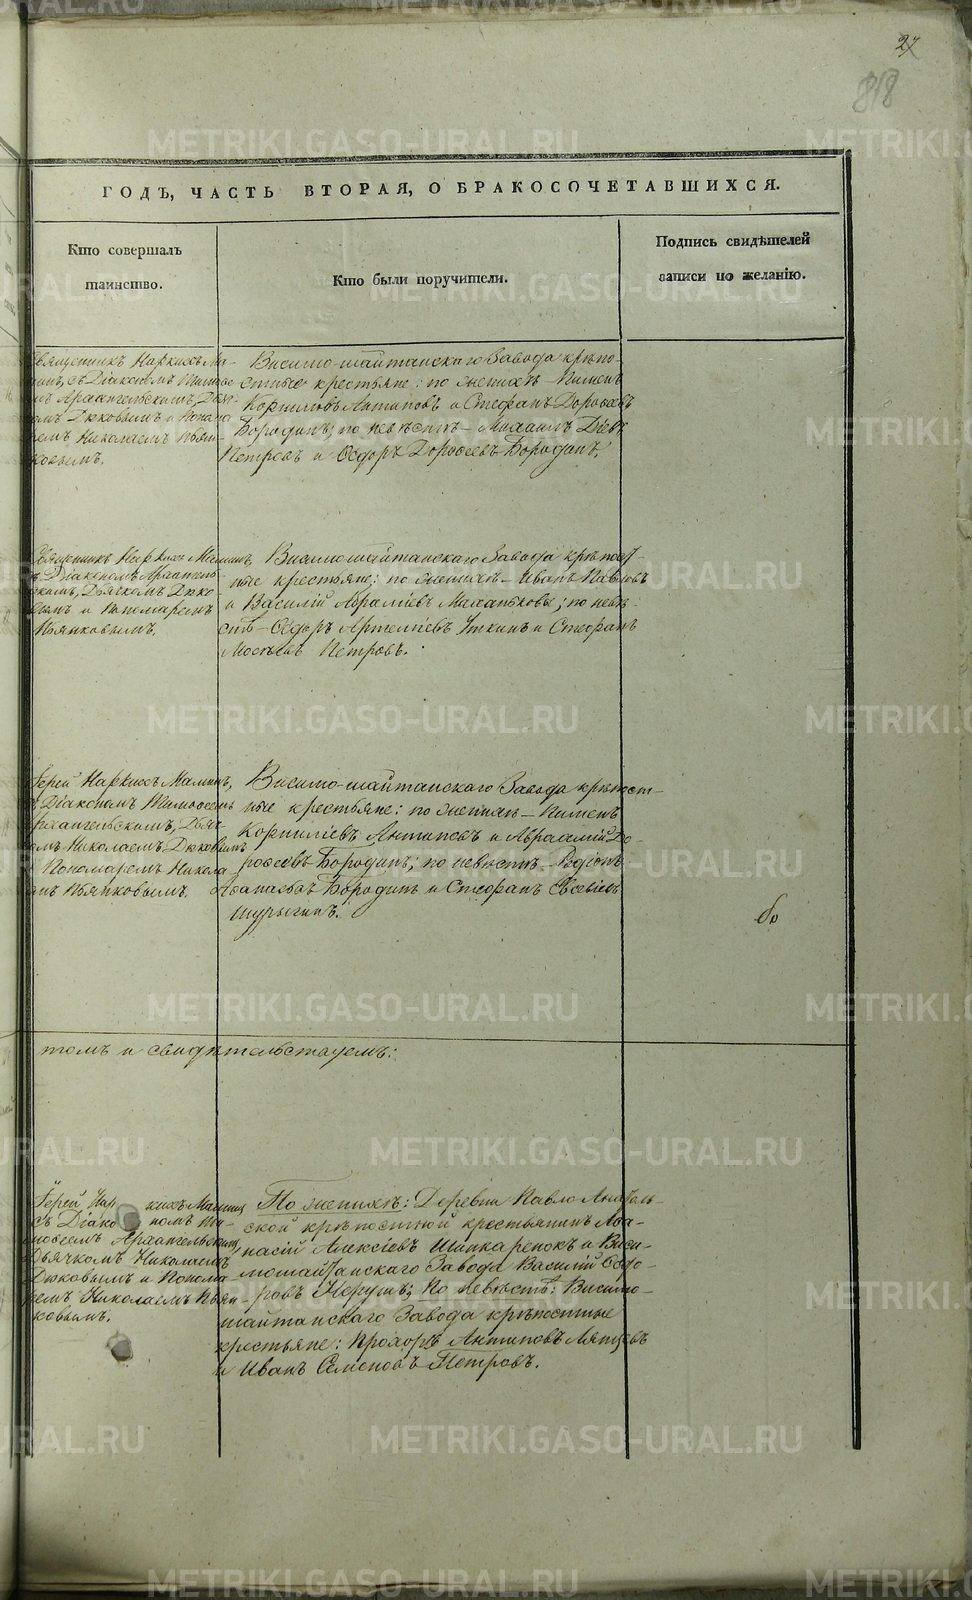 27
818
ГОДЪ, ЧАСТЬ ВТОРАЯ, О БРАКОСОЧЕТАВШИХСЯ.
Кто совершалъ
таинство.
Кто были поручители.
Подпись свидѣтелей
записи по желанію.
Священникъ Наркиссъ Ма-
минъ, съ Діакономъ Тимофее
мъ Архангельскимъ, Дьяч-
комъ Дюковымъ и Понома
ремъ Николаемъ Пьян-
ковымъ.
Висимо-шайтанскаго Завода крѣпо-
стные крестьяне: по женихѣ – Пименъ
Корниловъ Антиповъ и Стефанъ Дорофеевъ
Бородинъ; по невѣстѣ – Михаилъ Діевъ
Петровъ и Ѳедоръ Дорофеевъ Бородинъ.
Священникъ Наркисъ Маминъ,
съ Діакономъ Арханг
скимъ, Дьячкомъ Дюко
вымъ и Пономаремъ
Пьянковымъ.
Висимошайтанскаго Завода крѣпост-
ные крестьяне: по женихѣ – Иванъ Павловъ
и Василій Авраміевъ Маханьковы; по невѣ-
стѣ – Ѳедоръ Артеміевъ Уткинъ и Стефанъ
Петровъ.
Іерей Наркиссъ Маминъ,
съ Діакономъ Тимофеемъ
Архангельскимъ, Дьяч-
комъ Николаемъ Дюковымъ
и Пономаремъ Никола
емъ Пьянковымъ.
Висимо-шайтанскаго Завода крѣпост-
ные крестьяне: по женихѣ – Пименъ
Корниліевъ Антипевъ и Авраамій До-
рофеевъ Бородинъ; по невѣстѣ – Родіонъ
Бородинъ и Стефанъ
Шурыгинъ.
томъ и свидѣтельствуемъ:
Іерей Наркисъ Маминъ
съ Діакономъ Ти-
мофеемъ Архангельскимъ,
Дьячкомъ Николаемъ
Дюковымъ и Понома-
ремъ Николаемъ Пьян-
ковымъ.
По женихѣ: Деревни Павло Анатоль-
ской крѣпостной крестьянинъ Аѳа-
насій Алексіевъ Шинкаренокъ и Виси-
мошайтанскаго Завода Василій Ѳедо-
ровъ; По невѣстѣ: Висимо-
шайтанскаго Завода крѣпостные
крестьяне: Прохоръ Антиповъ
и Иванъ Семеновъ Петровъ.
METRIKI.GASO-URAL.RU